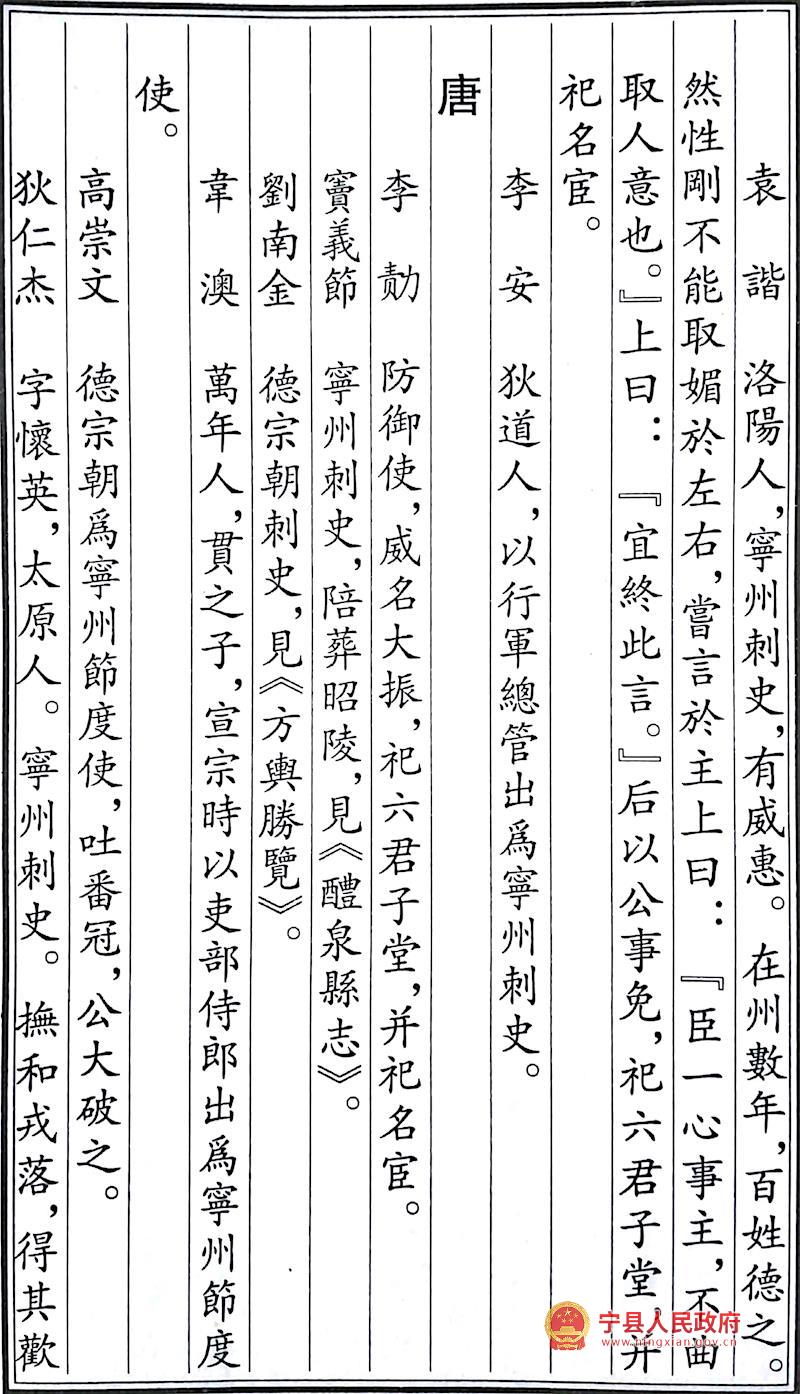 袁 諧 洛陽人，寧州刺史，有威惠。在州數年，百姓德之。
然性剛不能取媚於左右，嘗言於主上曰：『臣一心事主，不曲
取人意也。』上曰：『宜終此言。』后以公事免，祀六君子堂，并
祀名宦。
李 安 狄道人，以行軍總管出爲寧州刺史。
唐
李 勣 防御使，威名大振，祀六君子堂，并祀名宦。
竇義節 寧州刺史，陪葬昭陵，見《醴泉縣志》。
劉南金 德宗朝刺史，見《方輿勝覽》。
韋 澳 萬年人，貫之子，宣宗時以吏部侍郎出爲寧州節度
使。
高崇文 德宗朝爲寧州節度使，吐番冠，公大破之。
狄仁杰 字懷英，太原人。寧州刺史。撫和戎落，得其歡
宁县人民政府
www.ningxian.gov.cn